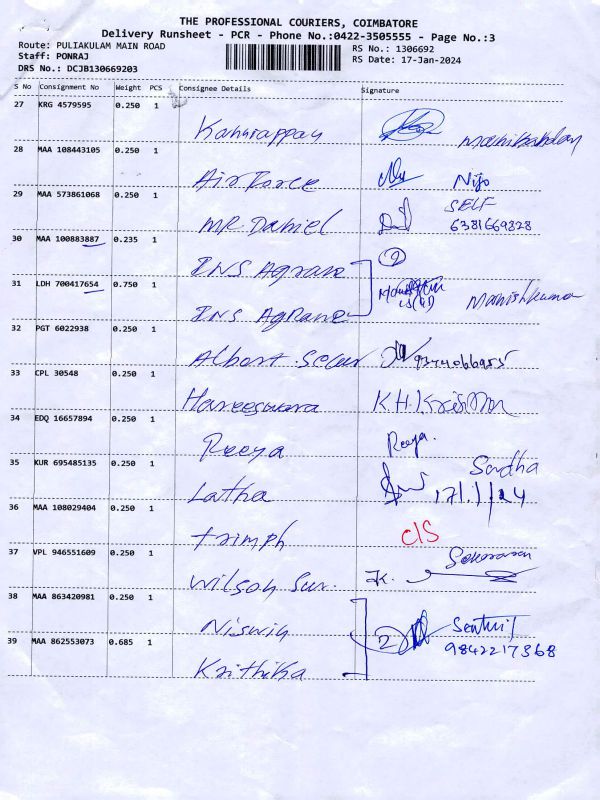 THE PROFESSIONAL COURIERS, COIMBATORE
Delivery Runsheet - PCR - Phone No.:0422-3505555 - Page No.:3
Route: PULIAKULAM MAIN ROAD
RS No.: 1306692
Staff: PONRAJ
RS Date: 17-Jan-2024
DRS No.: DCJB130669203
S No Consignment No Weight PCS Consignee Details Signature
27 KRG 4579595 0.250 1
28 MAA 108443105 0.250 1
Air Force Nijo
29 MAA 573861068 0.250 1
SELF
MR. Daniel 6381669828
30 MAA 100883887 0.235 1
INS Agrane
31 LDH 700417654 0.750 1
Manishkumar
INS Agrane
32 PGT 6022938 0.250 1
Albert 9344066955
33 CPL 30548 0.250 1
Hareeswara K.H.Krishna
34 EDQ 16657894 0.250 1
Reeya Reeya.
35 KUR 695485135 0.250 1
Sudha
Latha 17/1/24
36 MAA 108029404 0.250 1
triumph C/S
37 VPL 946551609 0.250 1
Wilson Sur. K.
38 MAA 863420981 0.250 1
Niswin 2 Senthil
39 MAA 862553073 0.685 1
9842217368
Krithika